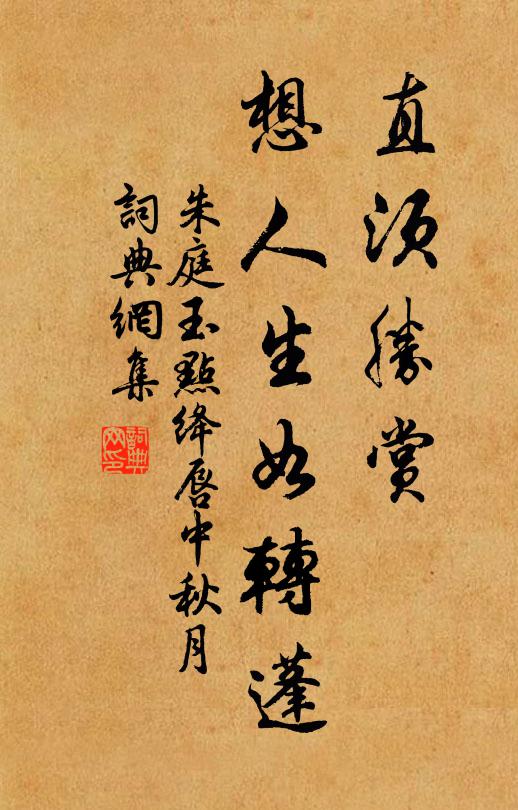 直須勝賞
想人生如轉蓬
朱庭玉點絳唇中秋月
詞典網集
詞典網印